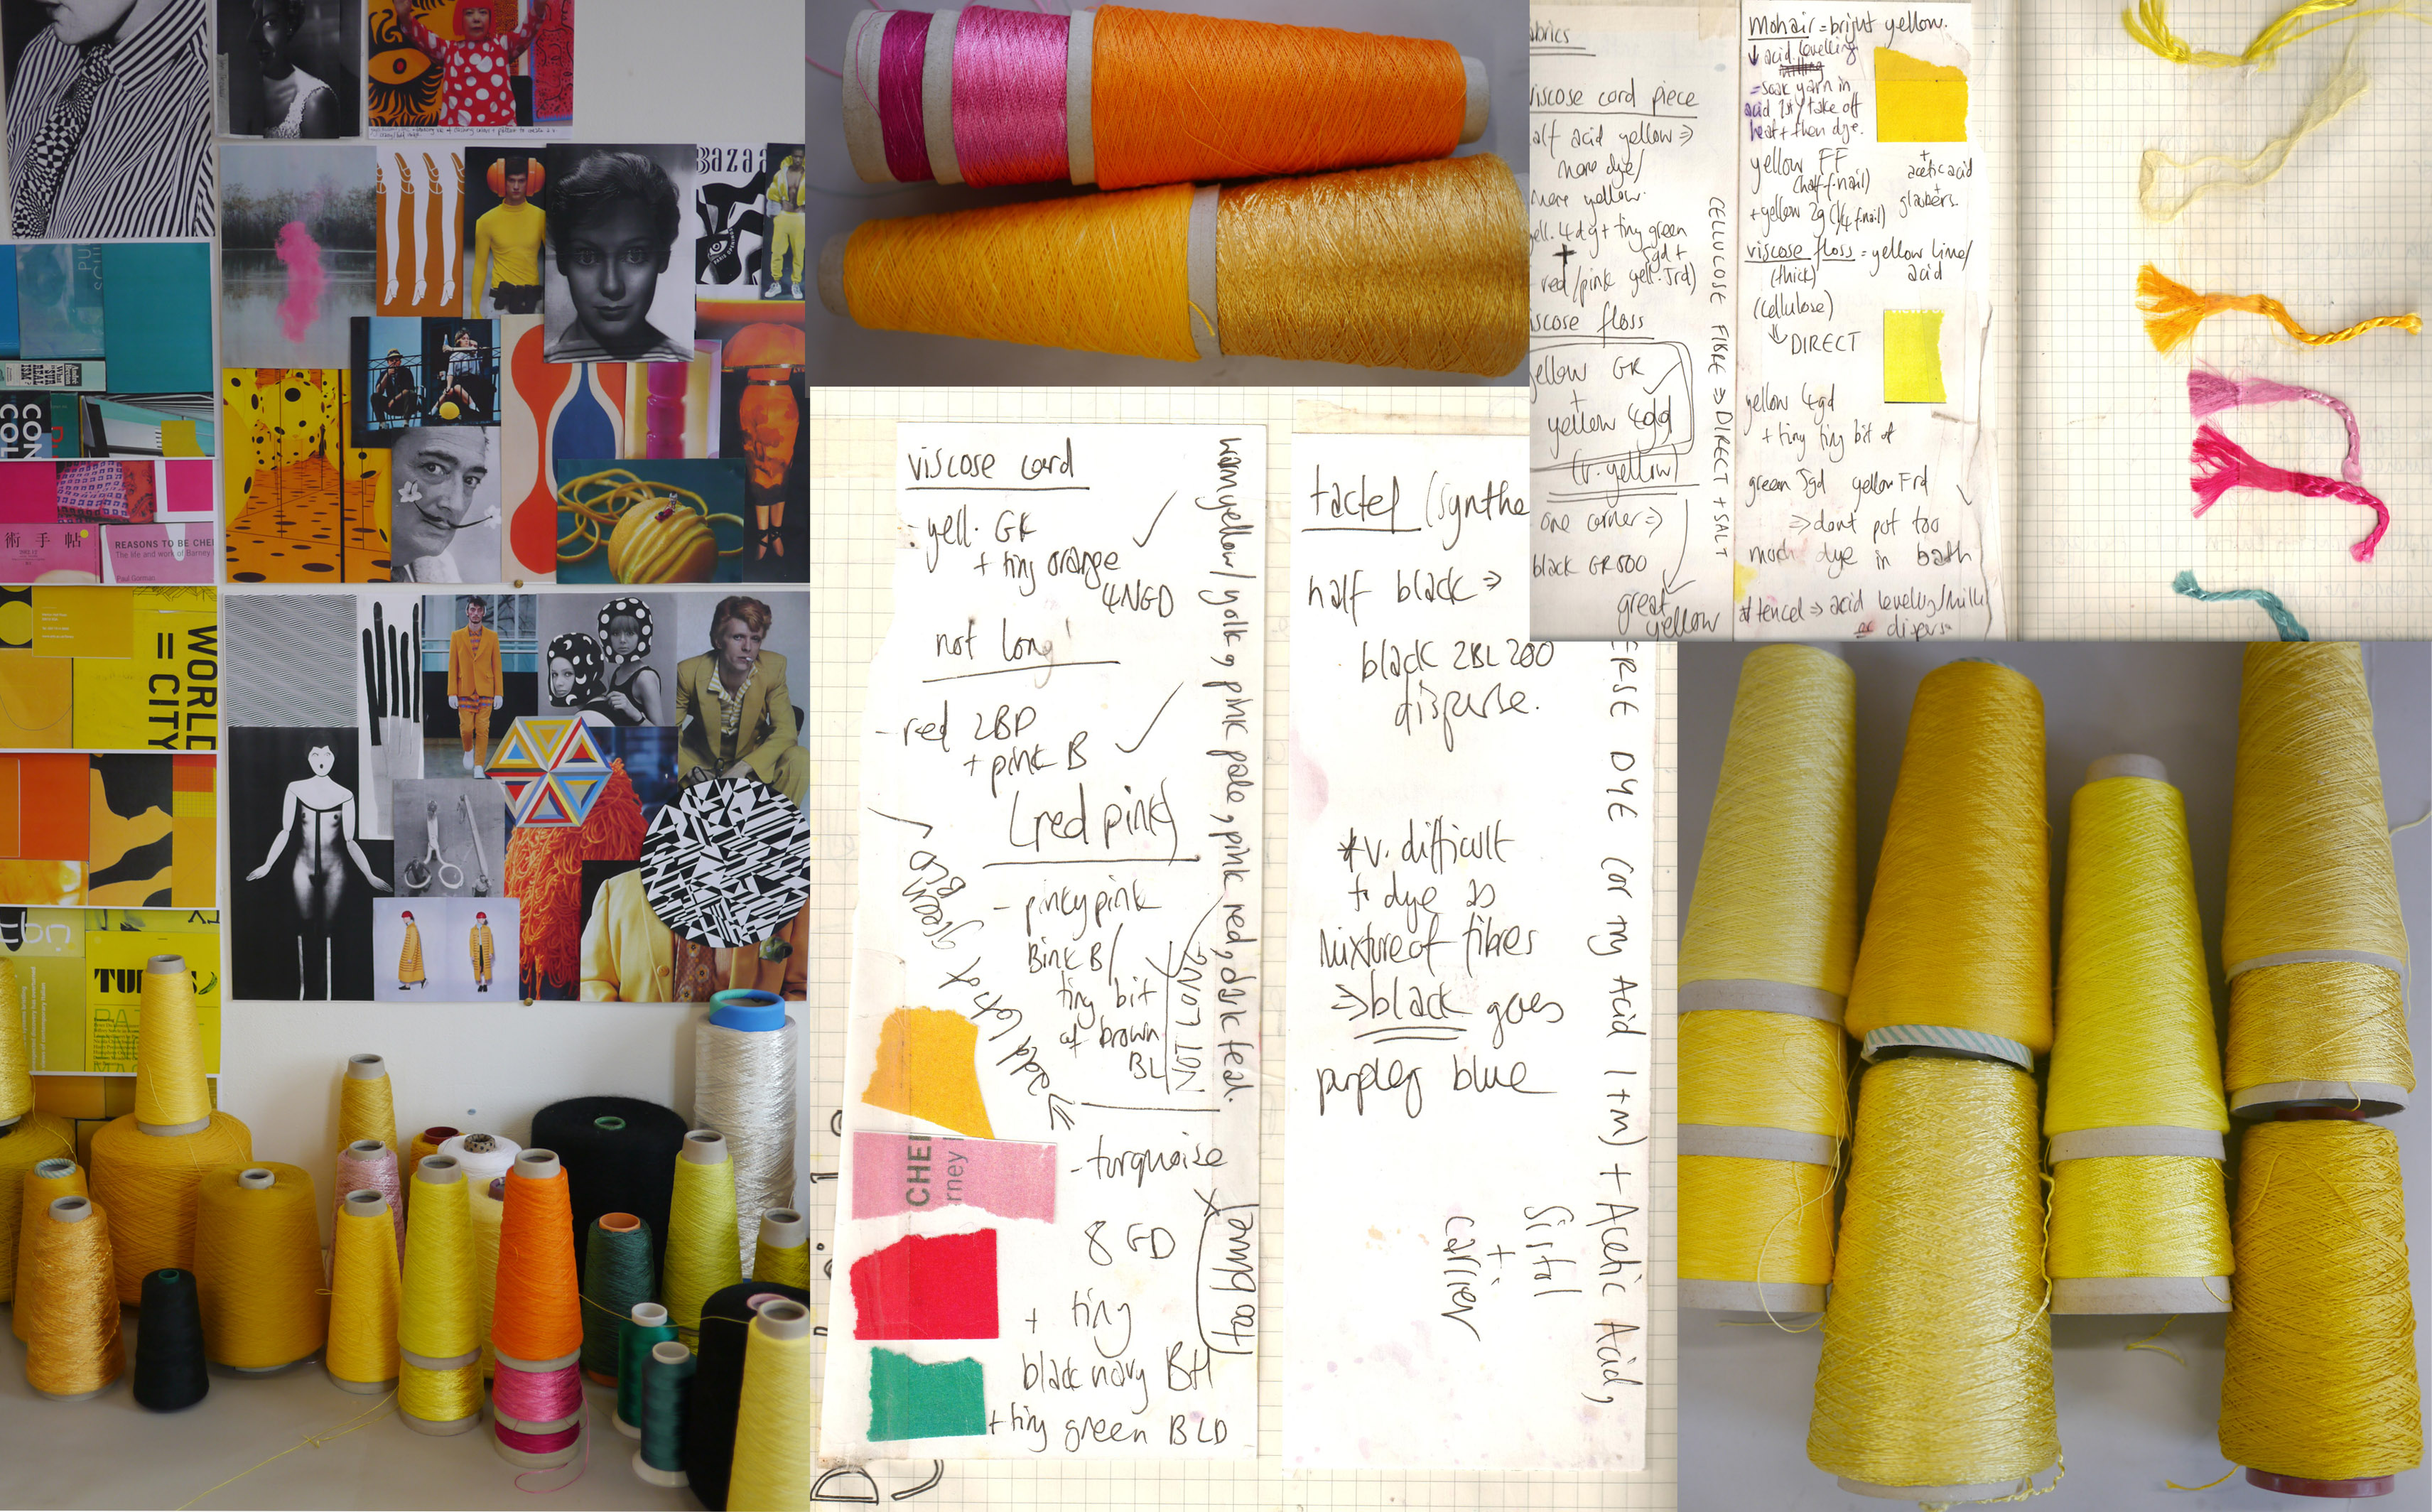 Bazaa
PARIS OPENINGS
CON
TOO
術手帖
REASONS TO BE CHE
The life and work of Barney
Paul Gorman
WORLD
= CITY
viscose cord
- yell. GR
+ tiny orange
4NGD
not long
- red 2BP
+ pink B
(red pink)
- pinky pink
Bink B/
tiny bit
of brown
BL
NOT LONG
green BLD
add lots of
- turquoise
8 GD
+ tiny
black navy BH
+ tiny green BLD
(too blue)
warm yellow/yolk, pink pale, pink red, dark teal.
CHE
rney
tactel (synthe
half black ⇒
black 2BL 200
disperse.
*v. difficult
to dye as
mixture of fibres
⇒ black goes
purpley blue
ERSE DYE (or try Acid 1+m) + Acetic Acid,
Sistal
+
carrier
abrics
viscose cord piece
alf acid yellow ⇒
more dye/
more yellow.
ell. 4dg + tiny green
5gd +
red/pink yell. 5rd)
iscose floss
yellow GR
+
yellow 4gd
(v. yellow)
one corner ⇒
black GR500
great
yellow
CELLULOSE FIBRE ⇒ DIRECT + SALT
Mohair = bright yellow.
↓ acid levelling
milling
= soak yarn in
acid 1st/take off
heat + then dye.
yellow FF
(half f.nail)
+ yellow 2g (1/4 f.nail)
+
acetic acid
+
glaubers.
viscose floss = yellow lime/
acid
(thick)
(cellulose)
DIRECT
yellow 4gd
+ tiny tiny bit of
green 5gd yellow Frd
⇒ dont put too
much dye in bath
* tencel ⇒ acid levelling/milli
or dispers